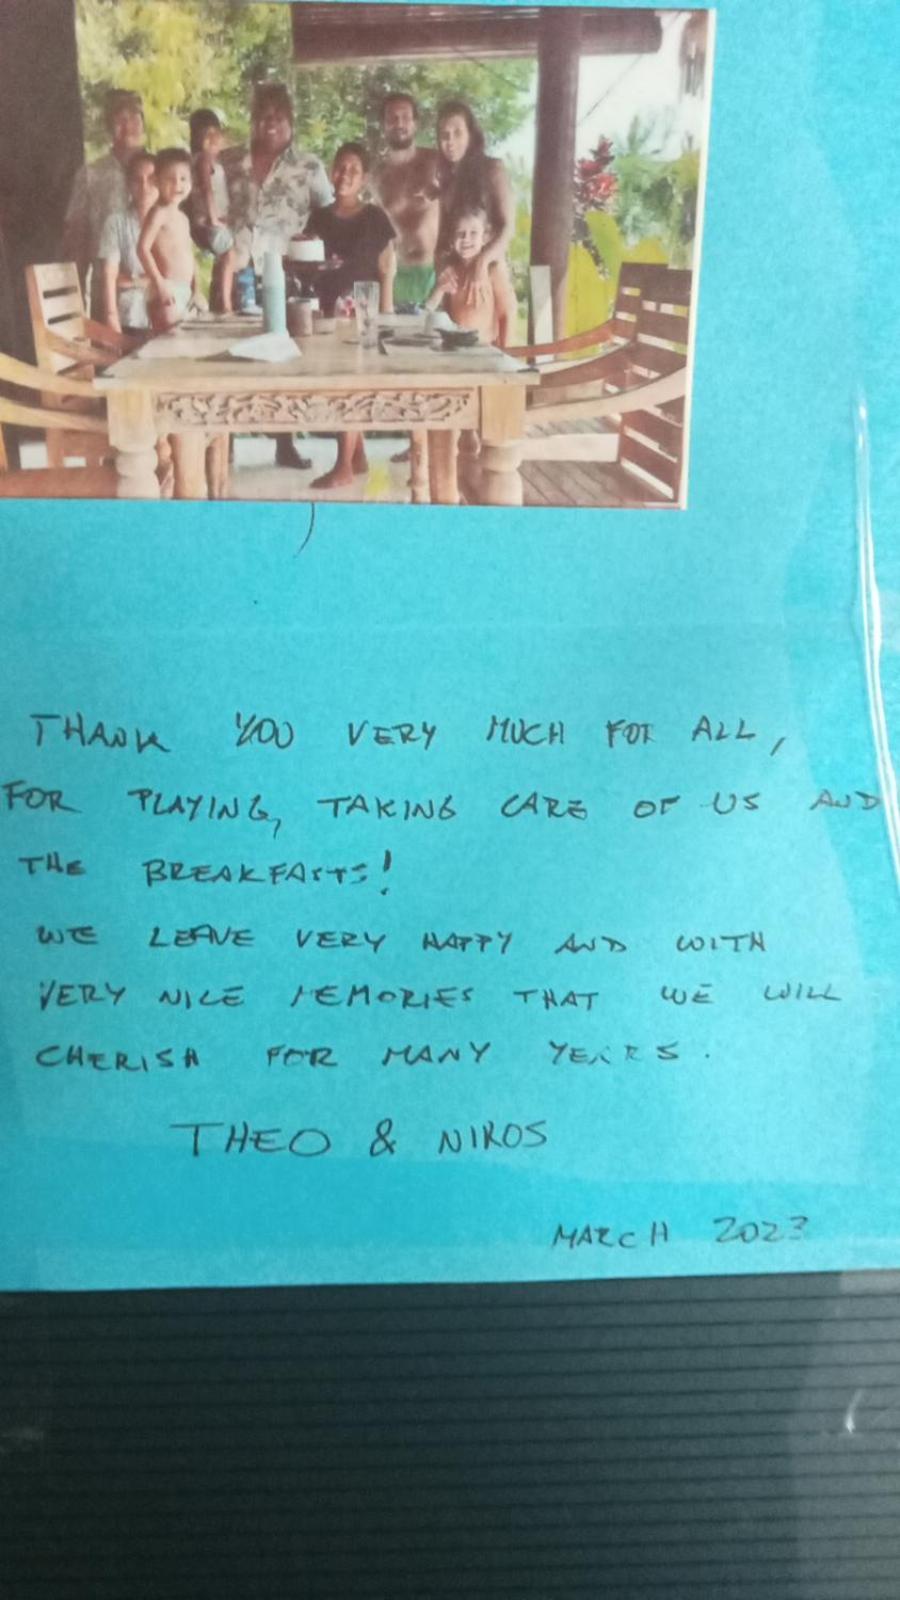 THANK YOU VERY MUCH FOR ALL,
FOR PLAYING, TAKING CARE OF US AND
THE BREAKFASTS!
WE LEAVE VERY HAPPY AND WITH
VERY NICE MEMORIES THAT WE WILL
CHERISH FOR MANY YEARS.
THEO & NIKOS
MARCH 2023